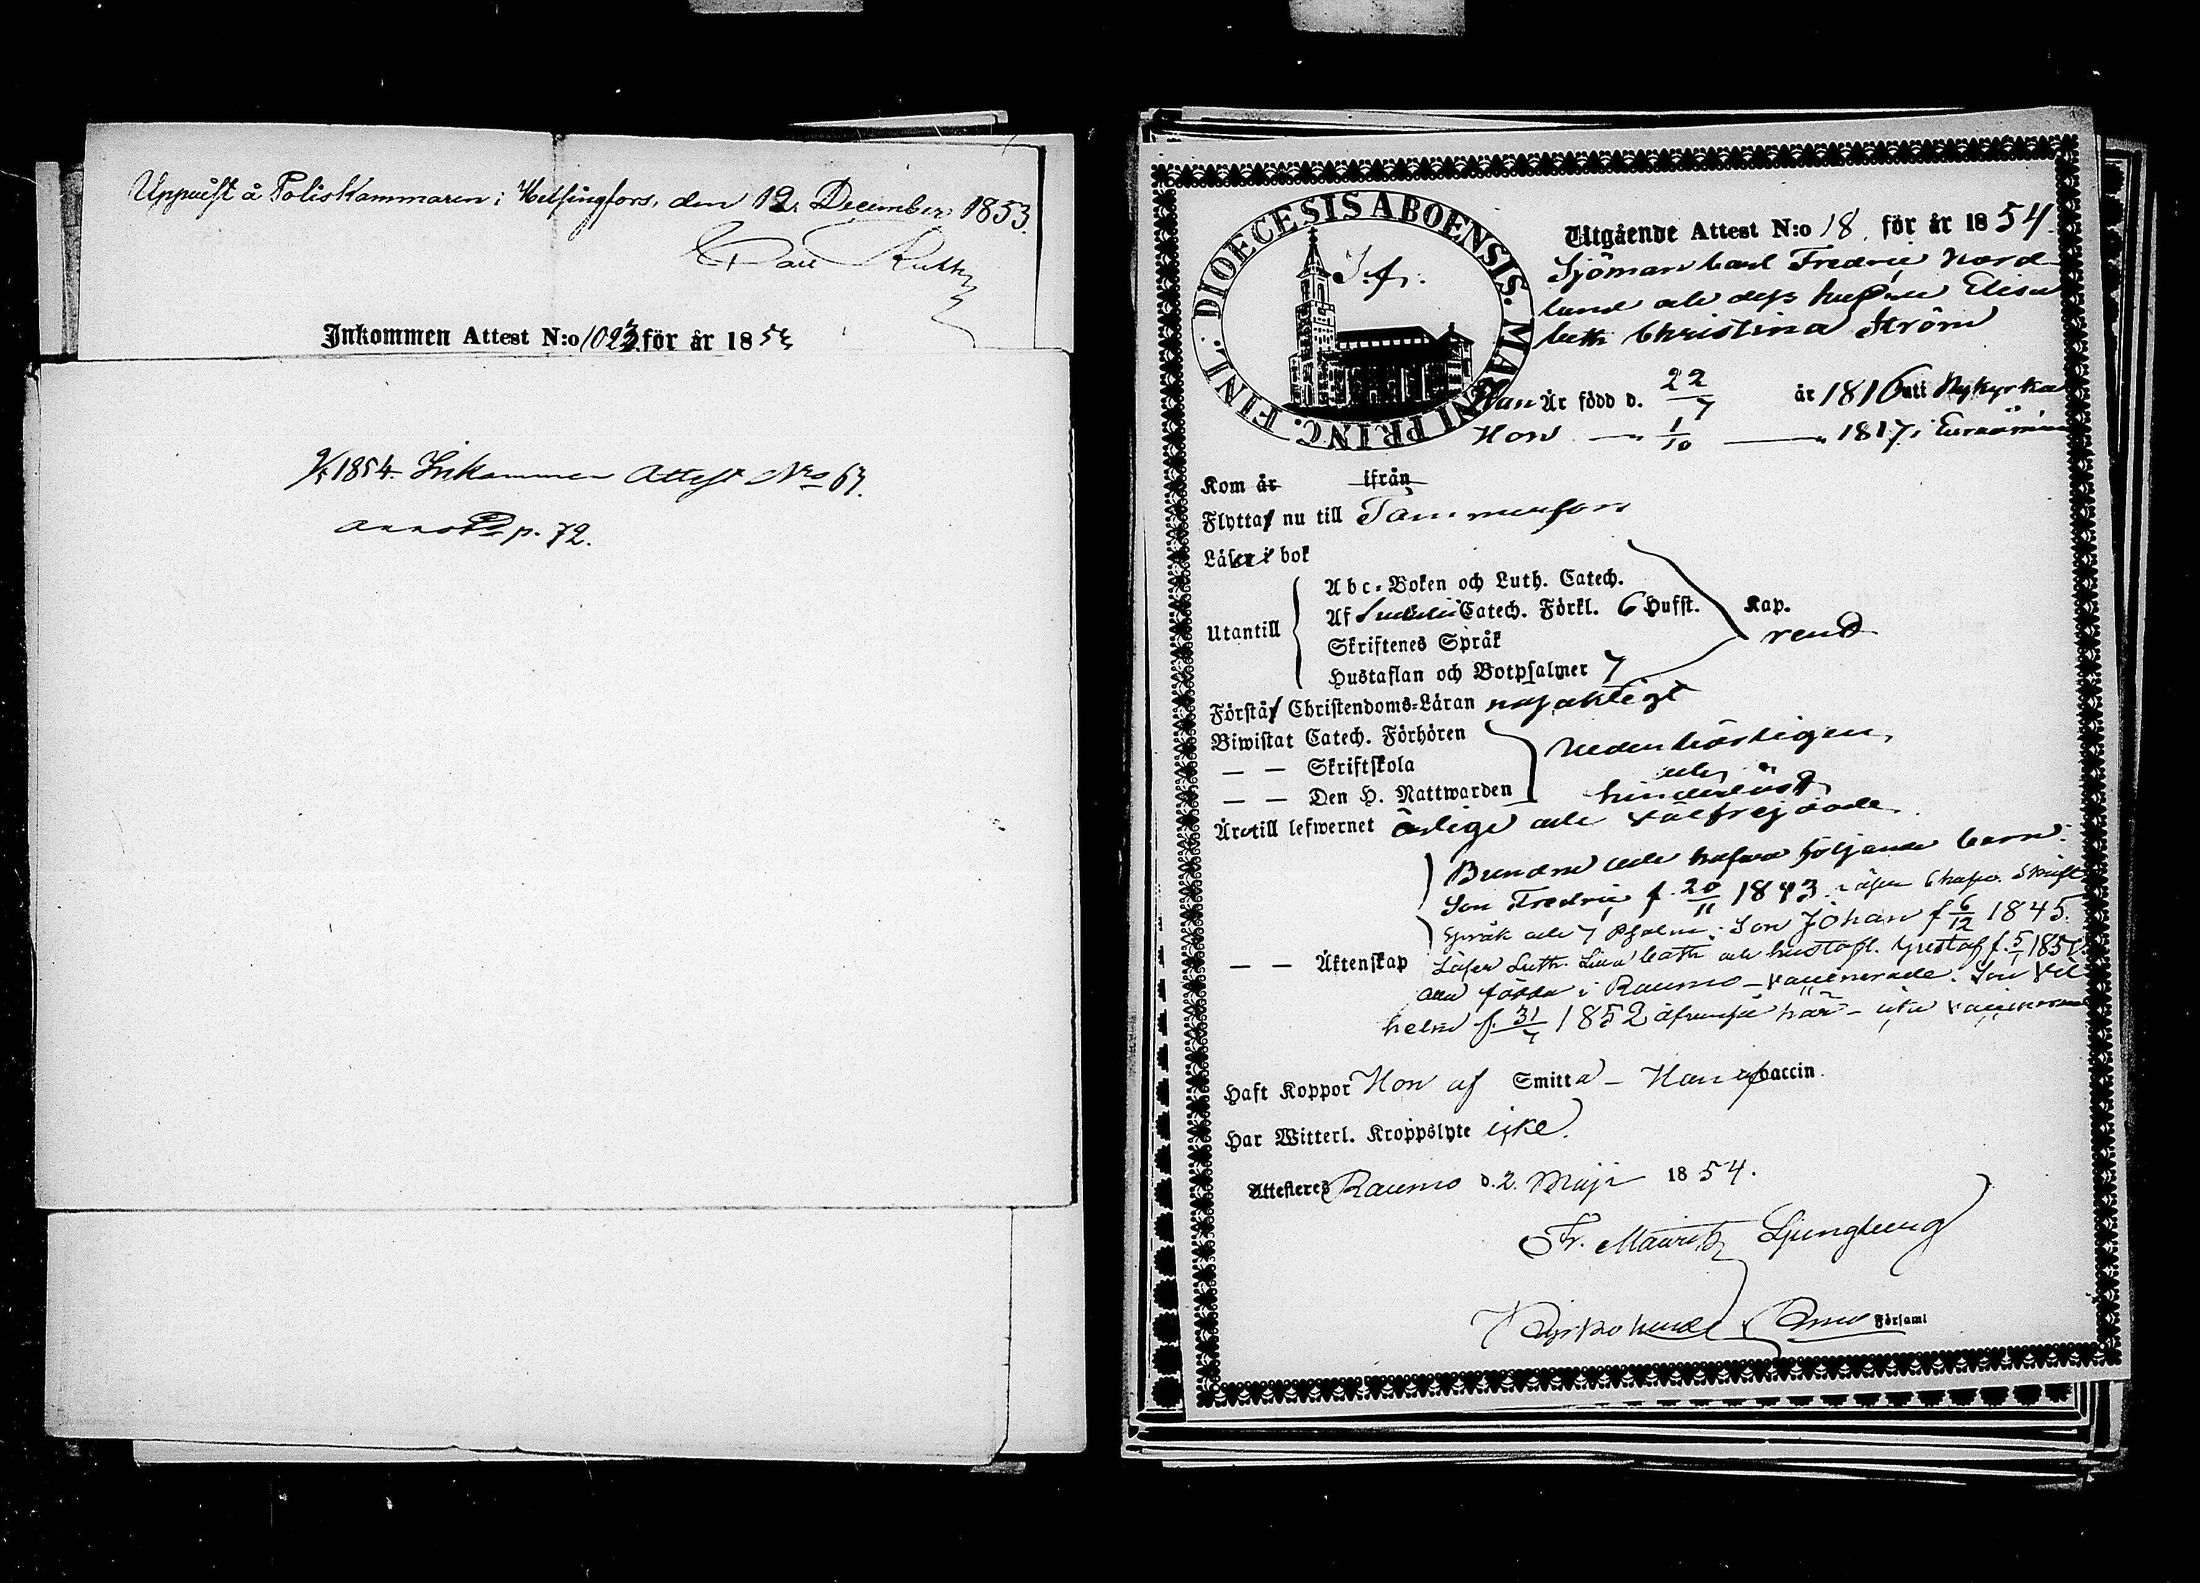 Uppvist å Poliskammaren i Helsingfors, den 12 December 1853.
Inkommen Attest N:o 1023 för år 1853
1854 Inkommen Attest No 67.
p. 72.
DIOECESIS ABOENSIS. MAGNI PRINC. FINL.
S. f.
Utgående Attest N:o 18 för år 1854.
Sjöman Carl Fredric Nord
lund och dess hustru Elisa
beth Christina Ström
Han Är född d. 22/7 år 1816 uti Nykyrka
Hon — " 1/10 — " 1817 i Euraåminne
Kom år ifrån
Flytta nu till Tammerfors
Läser i bok
Utantill
Abc-Boken och Luth. Catech.
Af Svebelii Catech. Förkl. 6 Hufst. Kap.
rend
Skriftenes Språk
Hustaflan och Botpsalmer 7
Förstå Christendoms-Läran nöjaktigt
Biwistat Catech. Förhören
— — Skriftskola
— — Den H. Nattwarden
vederbörligen
och
hinderlöst
Äro till lefwernet ärlige och välfrejdade.
— — Äktenskap
Bundne och hafva följande barn:
Son Fredric f. 20/11 1843. läser 6 hufv. Skrift
Språk och 7 Psalm; Son Johan f 6/12 1845.
Läser Luth. Lilla Cath och hustafl. Gustaf f. 5/1 1851
alla födda i Raumo — vaccinerade. Son Vil
helm f. 31/7 1852 äfvenså här — icke vaccinerad
Haft Koppor Hon af Smitta — Han af vaccin.
Har Witterl. Kroppslyte icke.
Attesteras Raumo d. 2. Maji 1854.
Fr. Mauritz Ljungberg
Kyrkoherde Församl